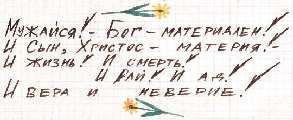 Мужайся! - Бог - материален!
И Сын, Христос - материя! -
И жизнь! И смерть!
И рай! И ад!
И вера и неверие!